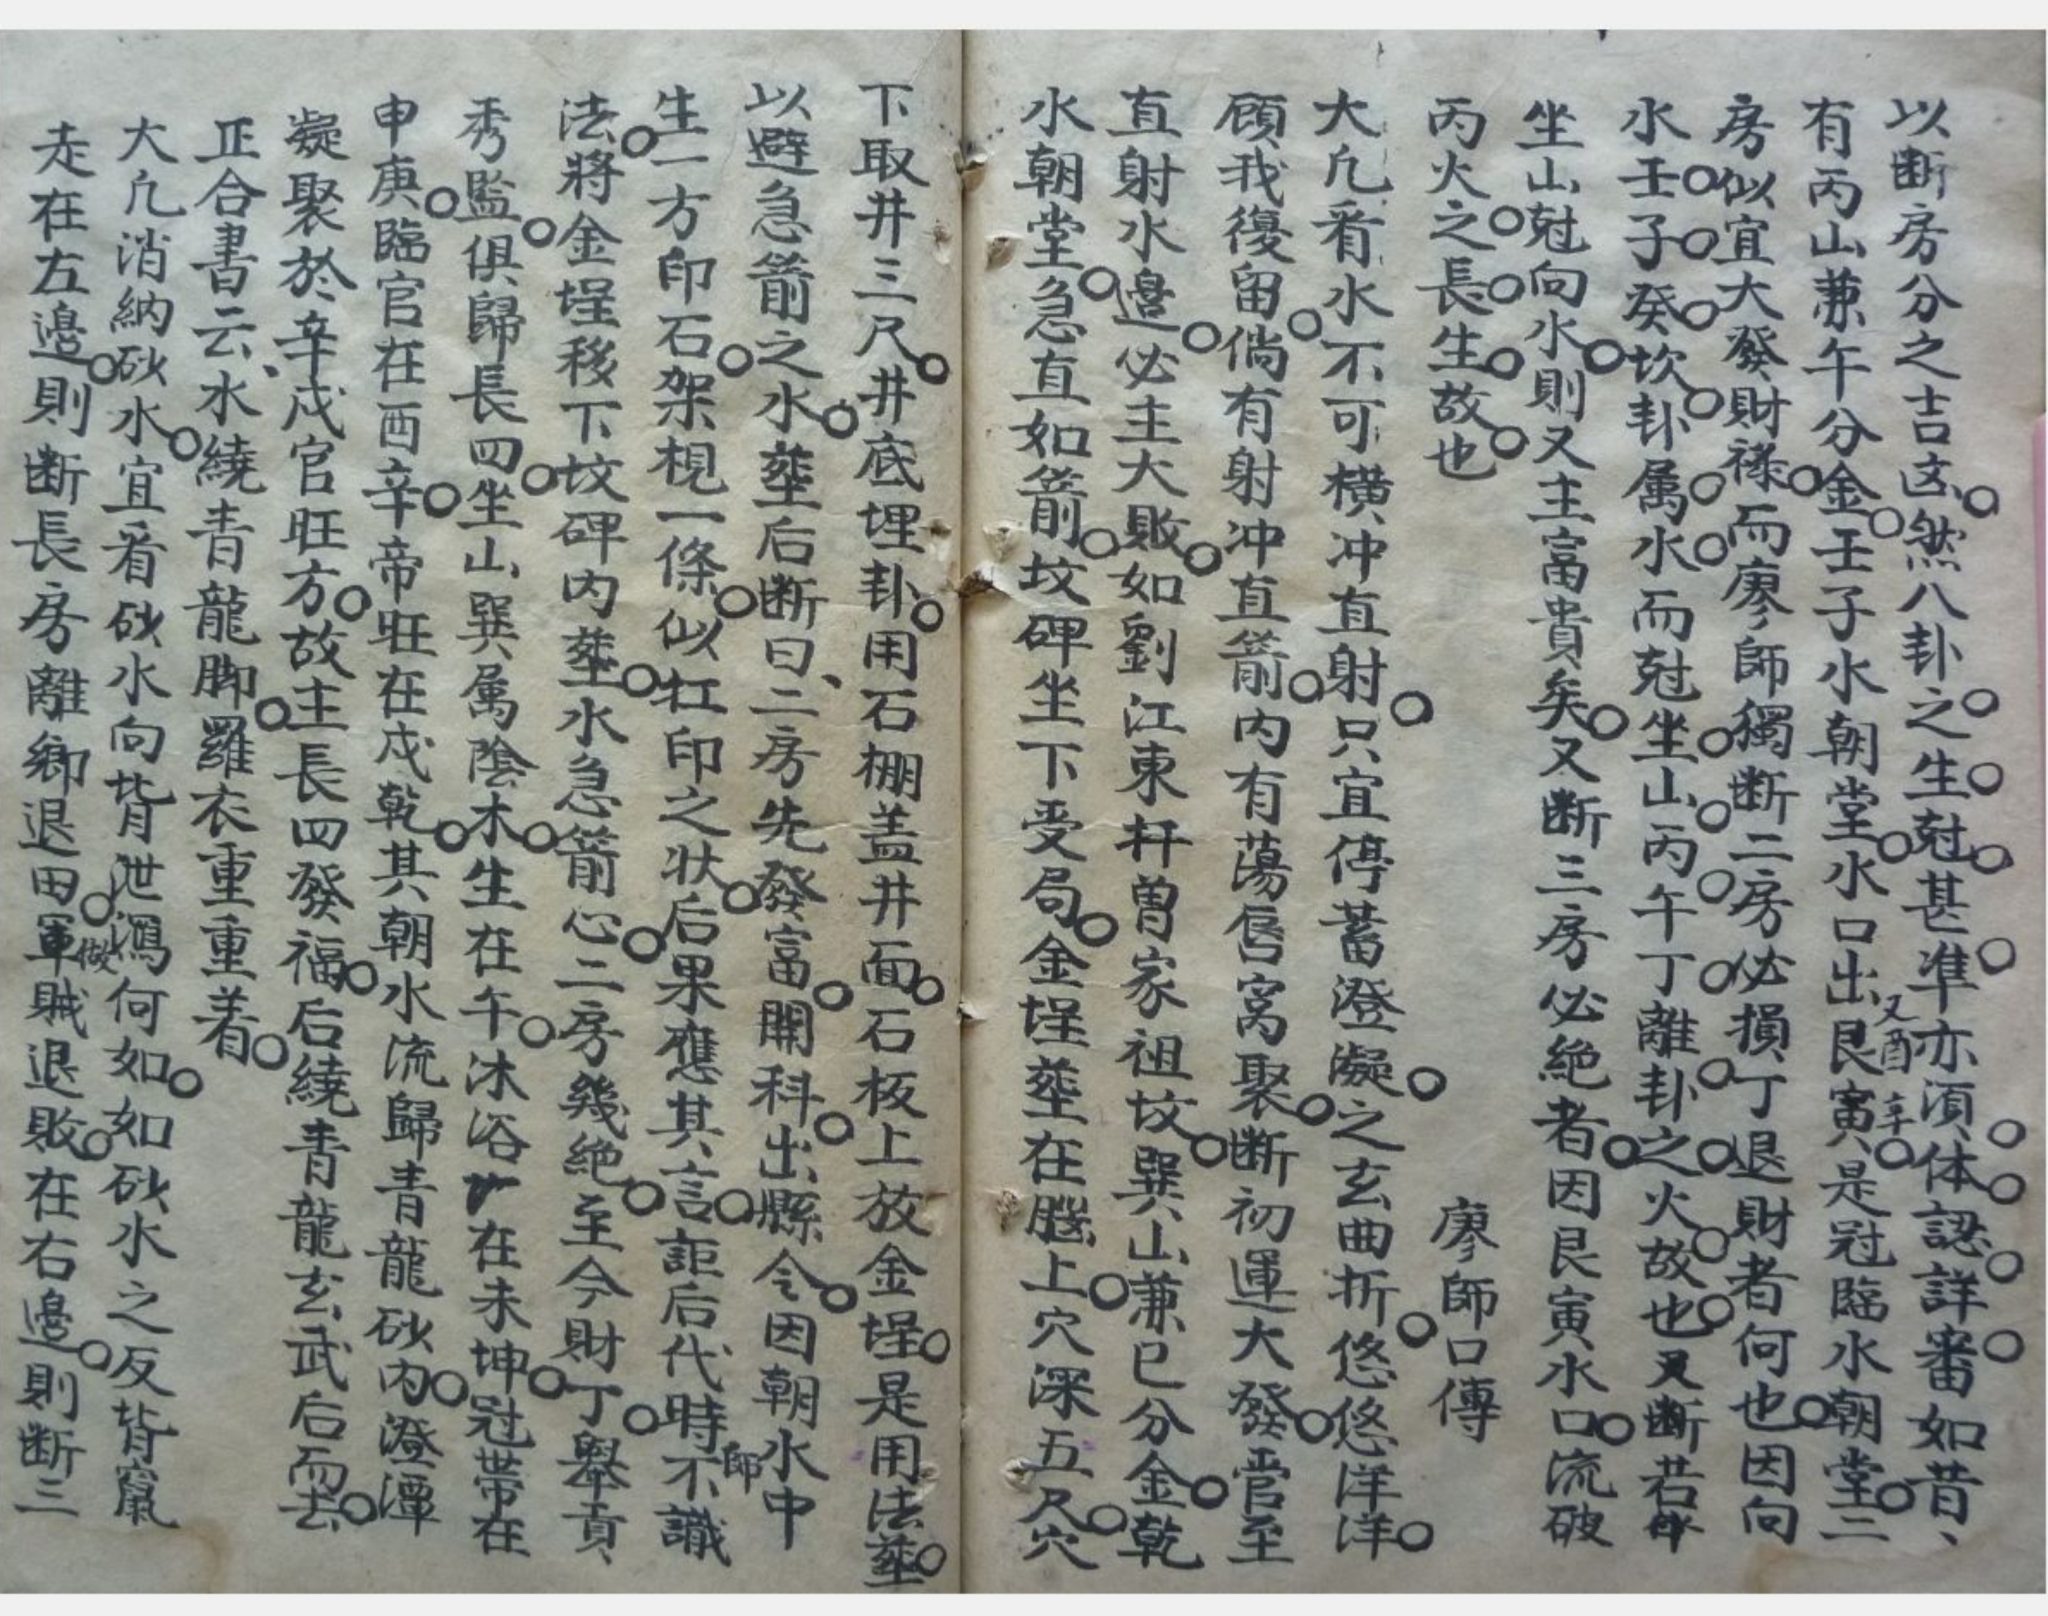 以断房分之吉凶。然八卦之生尅甚準亦須体認詳審如昔、
有丙山兼午分金。壬子水朝堂。水口出艮寅。又酉辛是冠臨水朝堂。二
房似宜大發財祿。而廖師獨断二房必損丁退財者何也。因向
水壬子癸坎卦属水而尅坐山丙午丁離卦之火故也又断若
坐山尅向水。則又主富貴矣。又断三房必絶者。因艮寅水口。流破
丙火之長生故也
廖師口傳
大凢看水不可橫冲直射。只宜停蓄澄凝。之玄曲折。悠悠洋洋。
顧我復留。倘有射冲直箭。内有蕩唇窩聚。断初運大發。官至
直射水邉。必主大敗。如劉江東扦曽家祖坟。巽山兼巳分金。乾
水朝堂。急直如箭。坟碑坐下受局。金埕塟在腦上。穴深五尺。穴
下取井三尺。井底埋卦。用石棚盖井面。石板上放金埕。是用法塟。
以避急箭之水。塟后断曰、二房先發富。開科。出縣令。因朝水中
生一方印石。架梘一條。似扛印之狀。后果應其言。詎后代時師不識
法。將金埕移下坟碑内塟。水急箭心。二房幾絶。至今財丁。舉貢、
秀監。俱歸長四。坐山巽属陰木。生在午。沐浴在未坤。冠帶在
申庚。臨官在酉辛。帝旺在戌乾。其朝水流歸青龍砂内。澄潭
凝聚於辛戌官旺方。故主長四發福。后繞青龍玄武后而去。
正合書云、水繞青龍脚。羅衣重重着。
大凢消納砂水。宜看砂水向背泄瀉何如。如砂水之反背竄
走在左邉。則断長房離鄉退田。做軍賊退敗。在右邉。則断三